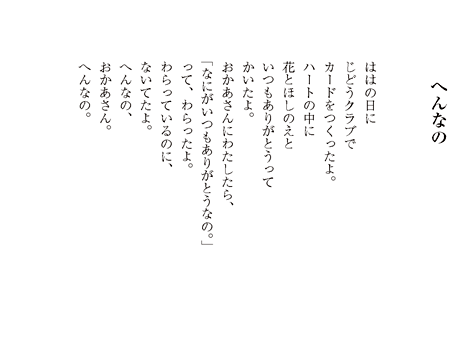 へんなの
ははの日に
じどうクラブで
カードをつくったよ。
ハートの中に
花とほしのえと
いつもありがとうって
かいたよ。
おかあさんにわたしたら、
「なにがいつもありがとうなの。」
って、わらったよ。
わらっているのに、
ないてたよ。
へんなの、
おかあさん。
へんなの。